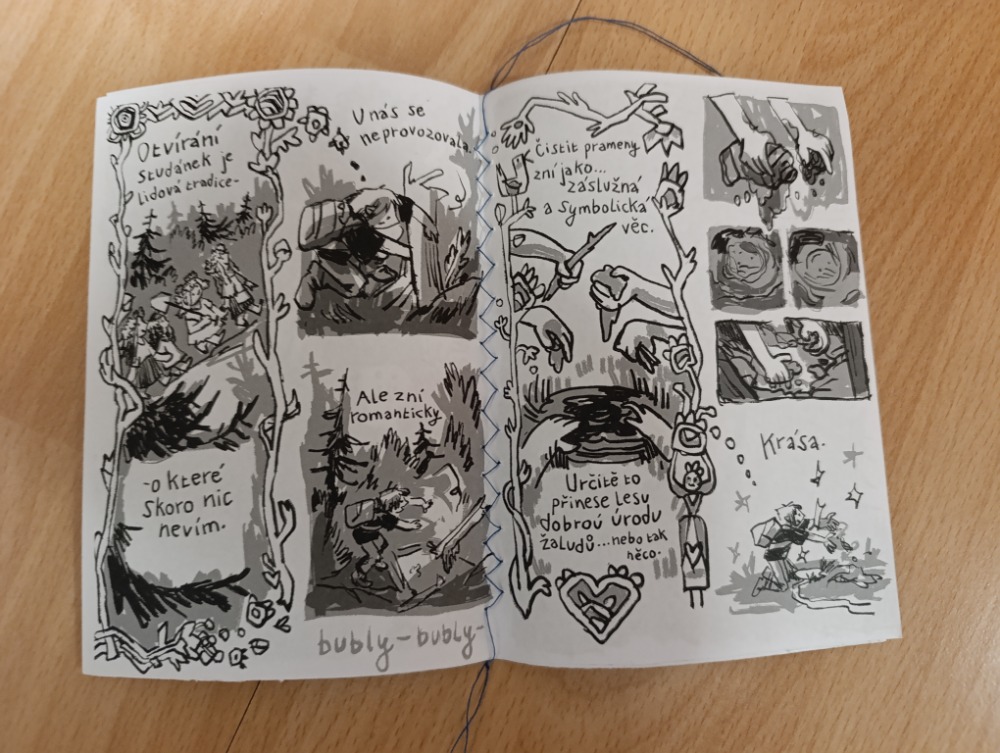 Otvírání
studánek je
lidová tradice-
-o které
skoro nic
nevím.
U nás se
neprovozovala.
Ale zní
romanticky
bubly-bubly-
Čistit prameny
zní jako...
záslužná
a symbolická
věc.
Určitě to
přinese lesu
dobrou úrodu
žaludů...nebo tak
něco.
Krása.